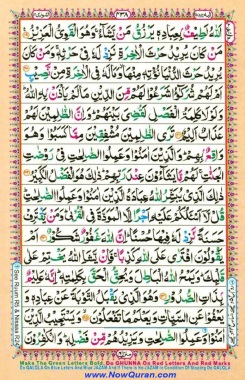 اَللّٰهُ لَطِيْفٌۢ بِعِبَادِهٖ يَرْزُقُ مَنْ يَّشَآءُ ۚ وَهُوَ الْقَوِيُّ الْعَزِيْزُ
مَنْ كَانَ يُرِيْدُ حَرْثَ الْاٰخِرَةِ نَزِدْ لَهٗ فِيْ حَرْثِهٖ ۚ وَمَنْ كَانَ
يُرِيْدُ حَرْثَ الدُّنْيَا نُؤْتِهٖ مِنْهَا وَمَا لَهٗ فِي الْاٰخِرَةِ مِنْ نَّصِيْبٍ
اَمْ لَهُمْ شُرَكٰٓؤُا شَرَعُوْا لَهُمْ مِّنَ الدِّيْنِ مَا لَمْ يَاْذَنْۢ بِهِ اللّٰهُ
وَلَوْلَا كَلِمَةُ الْفَصْلِ لَقُضِيَ بَيْنَهُمْ ۚ وَاِنَّ الظّٰلِمِيْنَ لَهُمْ
عَذَابٌ اَلِيْمٌ تَرَى الظّٰلِمِيْنَ مُشْفِقِيْنَ مِمَّا كَسَبُوْا وَهُوَ
وَاقِعٌۢ بِهِمْ ۚ وَالَّذِيْنَ اٰمَنُوْا وَعَمِلُوا الصّٰلِحٰتِ فِيْ رَوْضٰتِ
الْجَنّٰتِ ۚ لَهُمْ مَّا يَشَآءُوْنَ عِنْدَ رَبِّهِمْ ۚ ذٰلِكَ هُوَ الْفَضْلُ الْكَبِيْرُ
ذٰلِكَ الَّذِيْ يُبَشِّرُ اللّٰهُ عِبَادَهُ الَّذِيْنَ اٰمَنُوْا وَعَمِلُوا الصّٰلِحٰتِ
قُلْ لَّآ اَسْئَلُكُمْ عَلَيْهِ اَجْرًا اِلَّا الْمَوَدَّةَ فِي الْقُرْبٰى ۚ وَمَنْ يَّقْتَرِفْ
حَسَنَةً نَّزِدْ لَهٗ فِيْهَا حُسْنًا ۚ اِنَّ اللّٰهَ غَفُوْرٌ شَكُوْرٌ اَمْ
يَقُوْلُوْنَ افْتَرٰى عَلَى اللّٰهِ كَذِبًا ۚ فَاِنْ يَّشَاِ اللّٰهُ يَخْتِمْ عَلٰى
قَلْبِكَ ۚ وَيَمْحُ اللّٰهُ الْبَاطِلَ وَيُحِقُّ الْحَقَّ بِكَلِمٰتِهٖ ۚ اِنَّهٗ عَلِيْمٌۢ
بِذَاتِ الصُّدُوْرِ وَهُوَ الَّذِيْ يَقْبَلُ التَّوْبَةَ عَنْ عِبَادِهٖ وَ
يَعْفُوْا عَنِ السَّيِّاٰتِ وَيَعْلَمُ مَا تَفْعَلُوْنَ وَيَسْتَجِيْبُ الَّذِيْنَ
اٰمَنُوْا وَعَمِلُوا الصّٰلِحٰتِ وَيَزِيْدُهُمْ مِّنْ فَضْلِهٖ ۚ وَالْكٰفِرُوْنَ
www.NowQuran.com